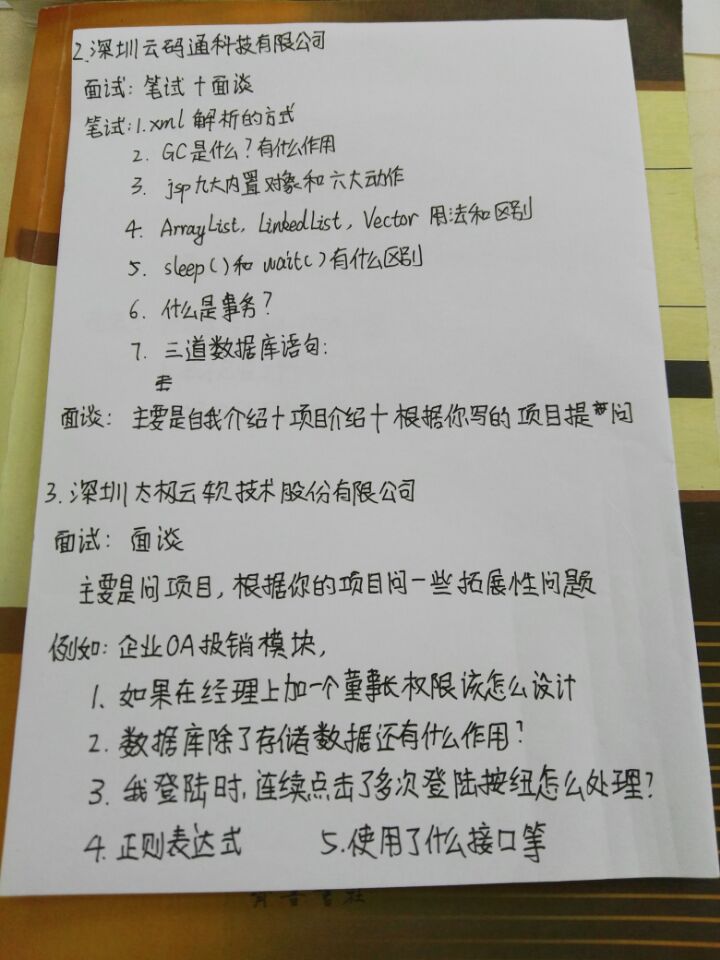 2.深圳云码通科技有限公司
面试: 笔试＋面谈
笔试:1.xml 解析的方式
2. GC是什么?有什么作用
3. jsp九大内置对象和六大动作
4. ArrayList, LinkedList, Vector 用法和区别
5. sleep()和wait()有什么区别
6. 什么是事务?
7. 三道数据库语句:
面谈: 主要是自我介绍＋项目介绍＋根据你写的项目提问
3.深圳太极云软技术股份有限公司
面试: 面谈
主要是问项目,根据你的项目问一些拓展性问题
例如:企业OA报销模块,
1. 如果在经理上加一个董事长权限该怎么设计
2. 数据库除了存储数据还有什么作用?
3. 我登陆时,连续点击了多次登陆按纽怎么处理?
4.正则表达式 5.使用了什么接口等